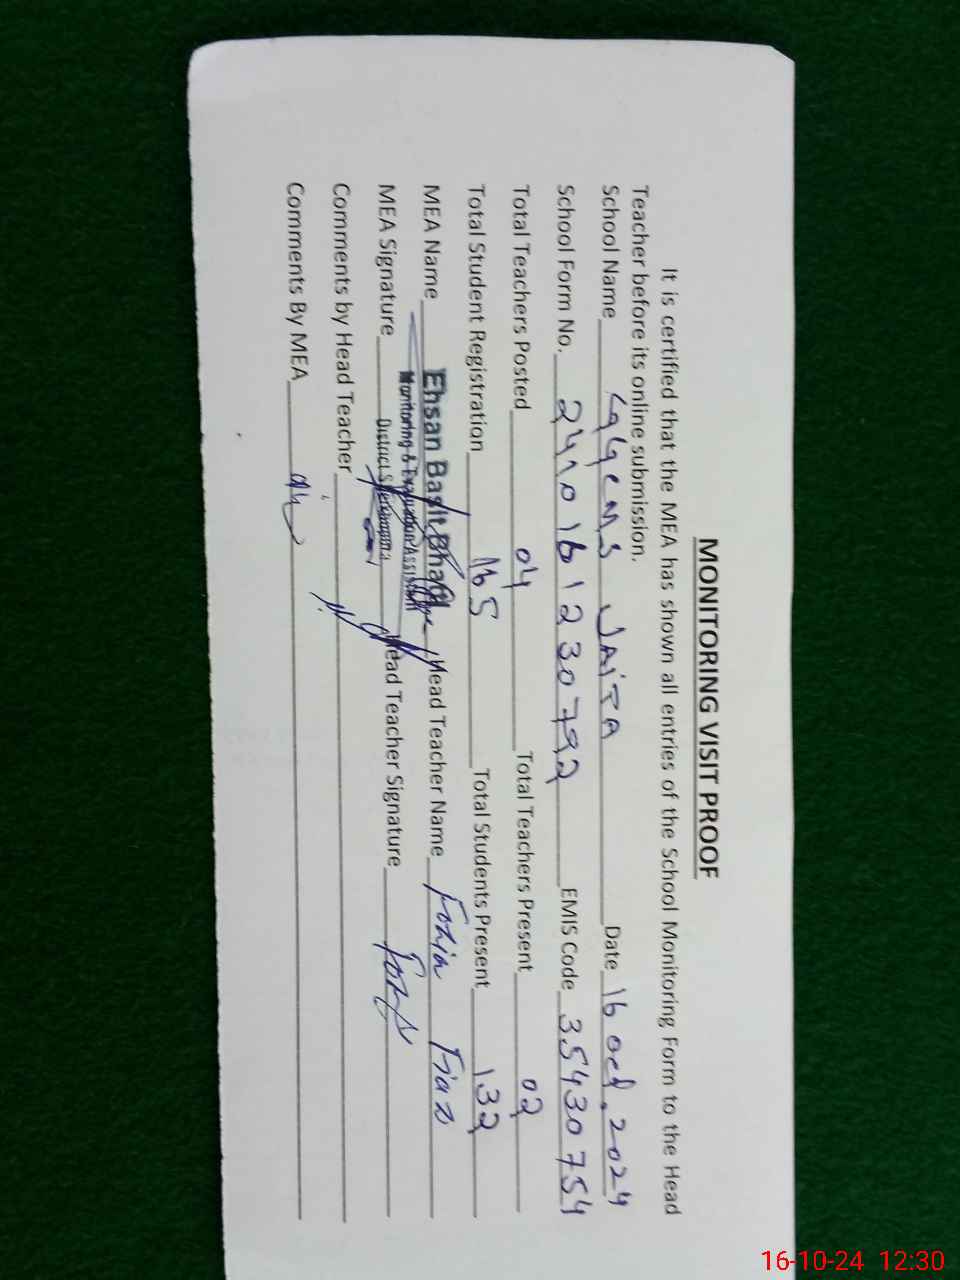 MONITORING VISIT PROOF
It is certified that the MEA has shown all entries of the School Monitoring Form to the Head
Teacher before its online submission.
School Name JAITA Date 16 Oct. 2024
School Form No. 2410161230792 EMIS Code 35430754
Total Teachers Posted 04 Total Teachers Present 02
Total Student Registration 165 Total Students Present 132
MEA Name Ehsan Basit Bhatti Head Teacher Name Fozia Fiaz
Monitoring & Evaluation Assistant
District Sheikhupura
MEA Signature Head Teacher Signature
Comments by Head Teacher
Comments By MEA
16-10-24 12:30